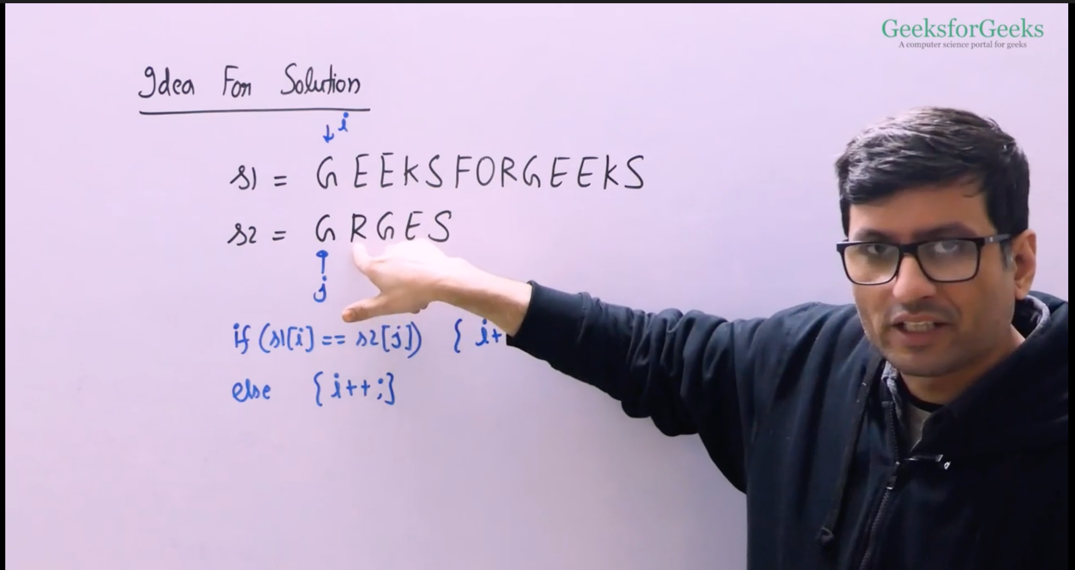 GeeksforGeeks
A computer science portal for geeks
Idea For Solution
i
s1 = GEEKSFORGEEKS
s2 = GRGES
j
if (s1[i] == s2[j]) { i+
else {i++;}